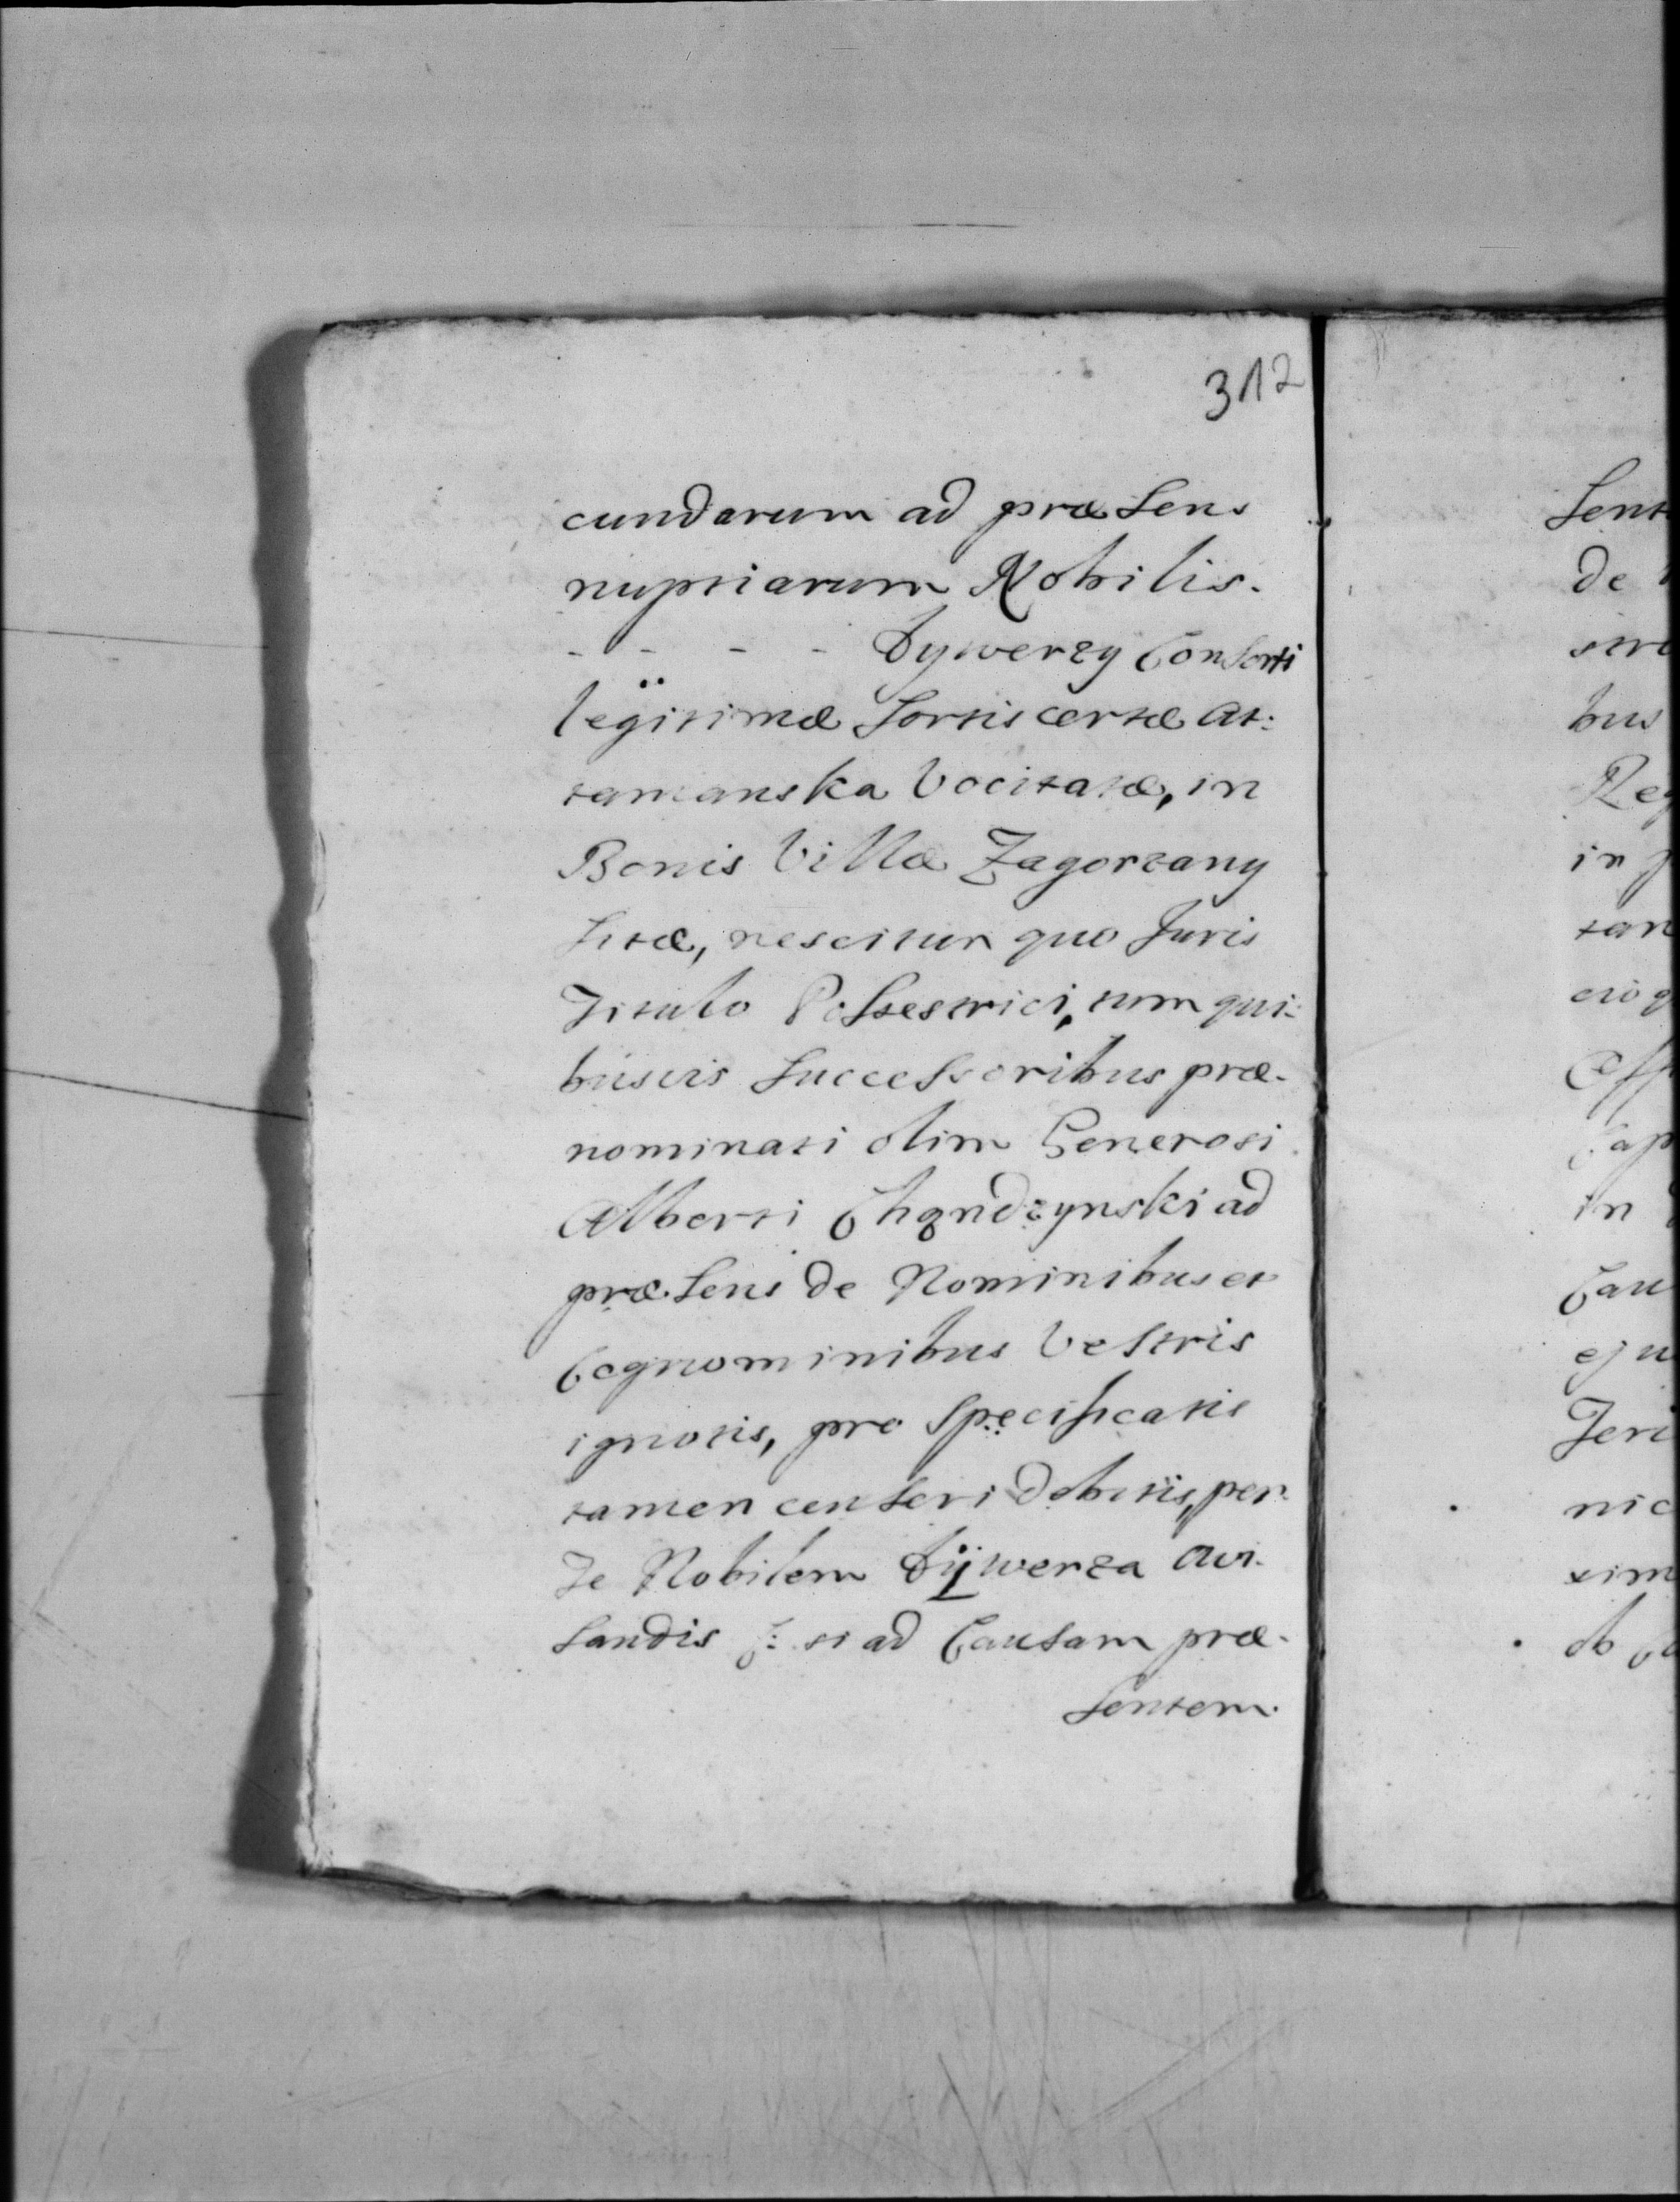 312
cundarum ad præsens
nuptiarum Nobilis.
- - - - Dywerzy Consorti
legitimæ Sortis certæ At:
tamanska Vocitatæ, in
Bonis Villæ Zagorzany
Sitæ, nescitur quo Juris
Titulo Possestrici, tum qui:
busvis Successoribus præ-
nominati olim Generosi
Alberti Chqndzynski ad
præsens de Nominibus et
Cognominibus Vestris
ignotis, pro Specificatis
tamen censeri debitis, per
Te Nobilem Dywerza avi-
sandis si ad Causam præ-
sentem.
Sent
de
stre
bus
Reg
in p
tan
cio q
Off
Cap
in
Cau
eju
Teri
nic
xim
ob Ca